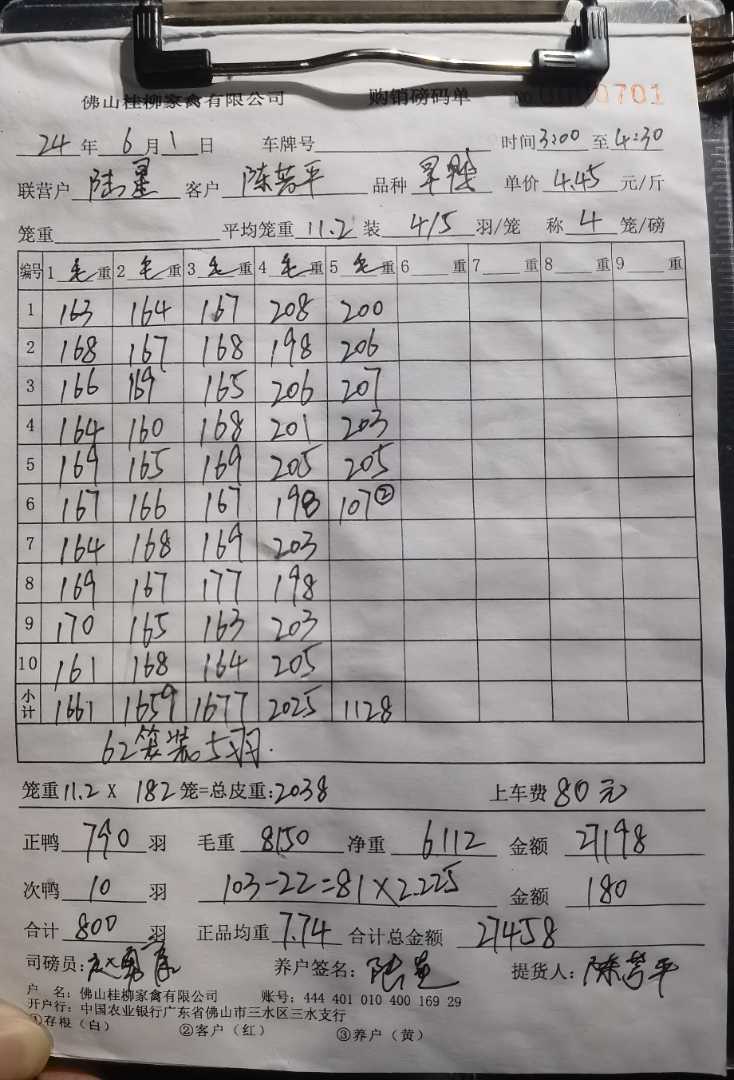 佛山桂柳家禽有限公司 购销磅码单 0701
24年6月1日 车牌号 时间3:00至4:30
联营户 陆星 客户 陈芳平 品种 单价 4.45 元/斤
笼重 平均笼重 11.2 装 4/5 羽/笼 称 4 笼/磅
编号 1 毛重 2 毛重 3 毛重 4 毛重 5 毛重 6 重 7 重 8 重 9 重
1 163 164 167 208 200
2 168 167 168 198 206
3 166 169 165 206 207
4 164 160 168 201 203
5 169 165 169 205 205
6 167 166 167 198 107②
7 164 168 169 203
8 169 167 177 198
9 170 165 163 203
10 161 168 164 205
小计 1661 1659 1677 2025 1128
62笼装5羽.
笼重11.2×182笼=总皮重:2038 上车费80元
正鸭 790 羽 毛重 8150 净重 6112 金额 27198
次鸭 10 羽 103-22=81×2.225 金额 180
合计 800 羽 正品均重 7.74 合计总金额 27458
司磅员: 养户签名: 陆星 提货人: 陈芳平
户 名: 佛山桂柳家禽有限公司 账号: 444 401 010 400 169 29
开户行: 中国农业银行广东省佛山市三水区三水支行
①存根（白） ②客户（红） ③养户（黄）